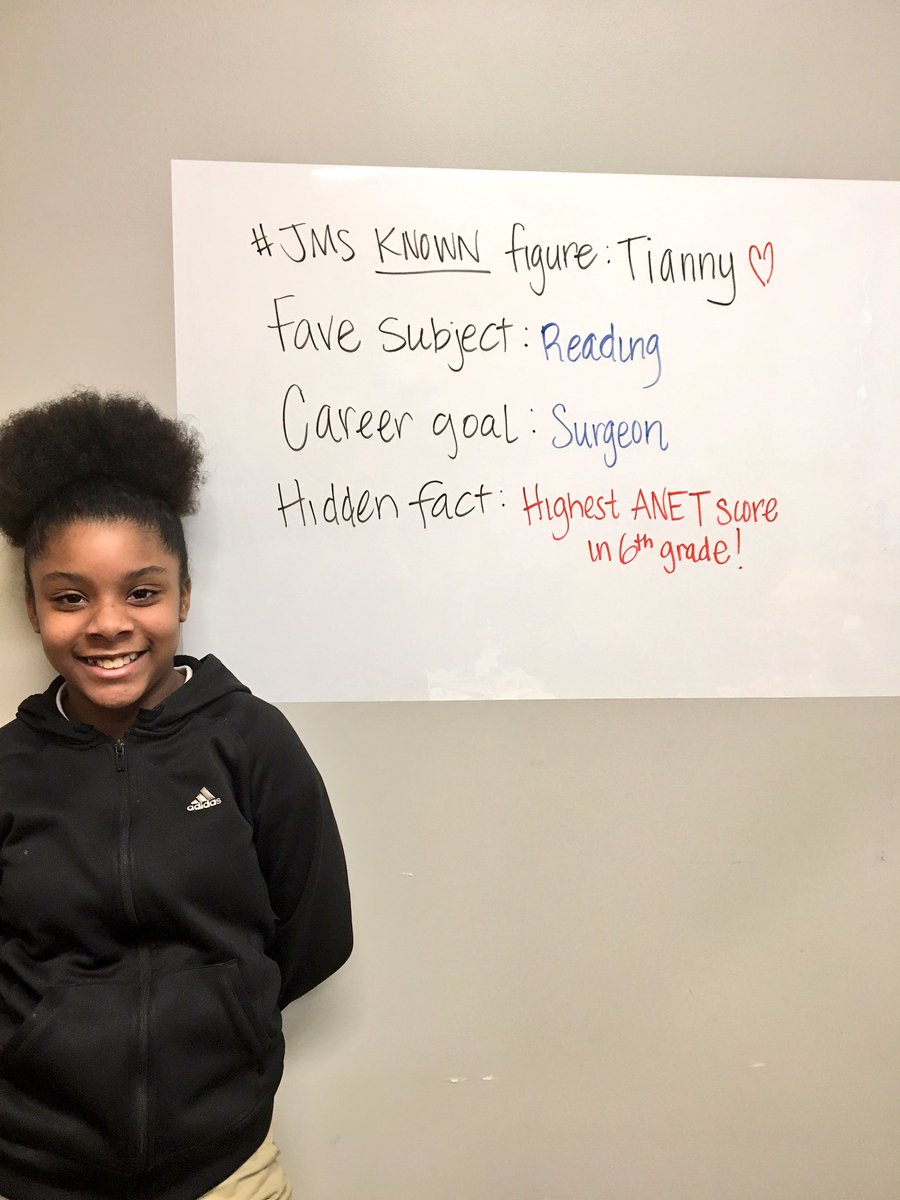 #JMS KNOWN figure: Tianny ♡
Fave subject: Reading
Career goal: Surgeon
Hidden fact: Highest ANET score
in 6th grade!
adidas